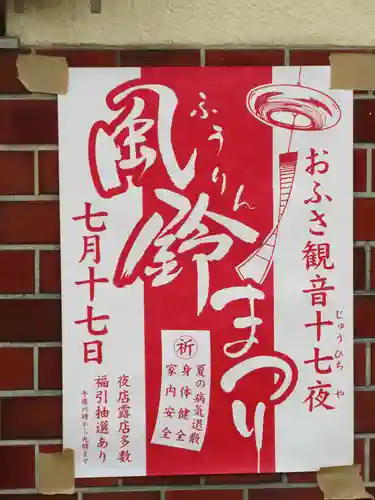 おふさ観音十七夜
じゅうひちや
風鈴まつり
ふうりん
七月十七日
祈
夏の病気退散
身体健全
家内安全
夜店露店多数
福引抽選あり
午後六時から九時まで